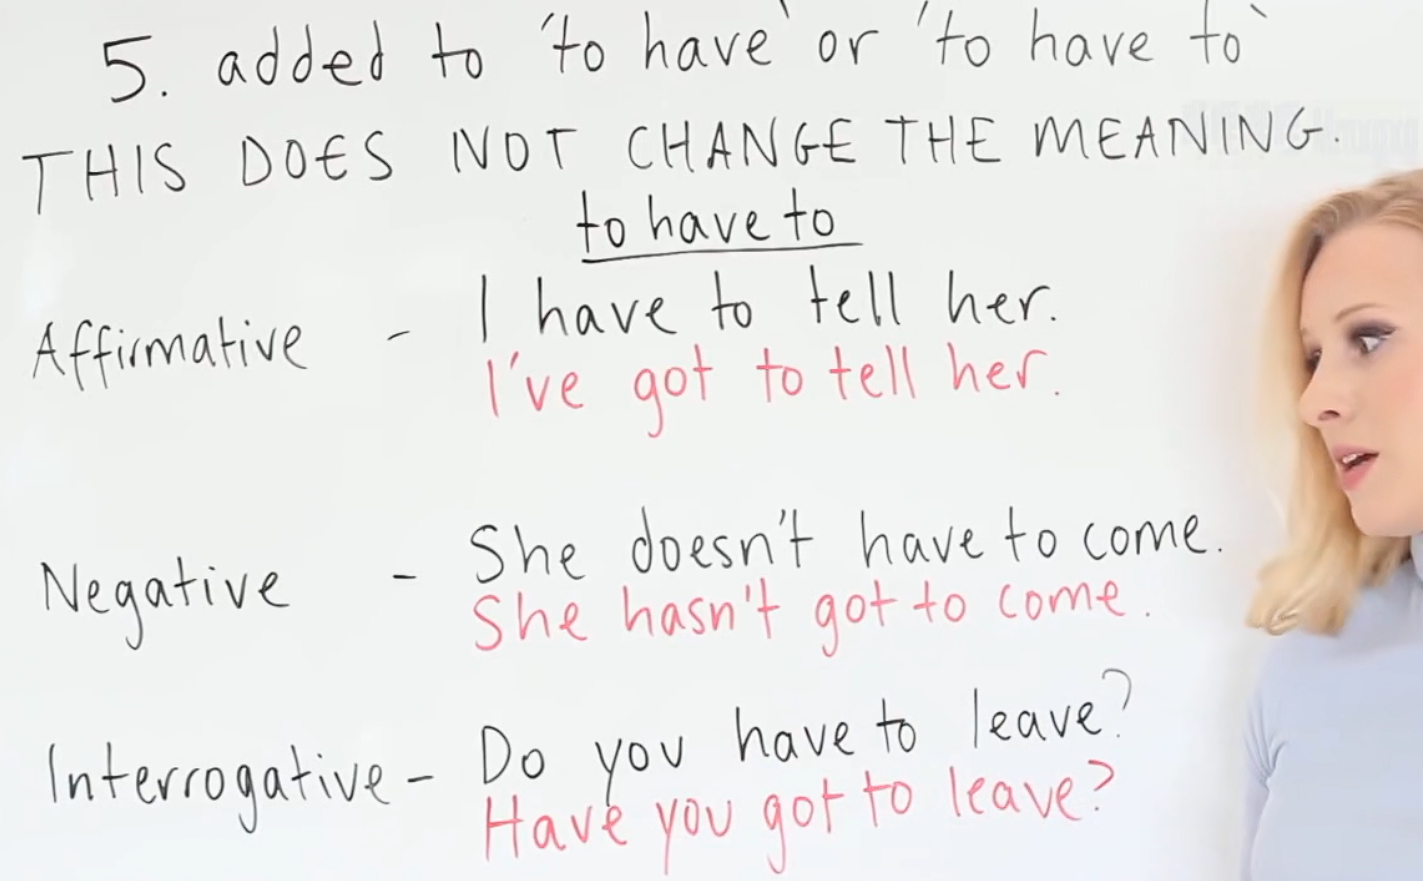 5. added to 'to have' or 'to have to'
THIS DOES NOT CHANGE THE MEANING.
to have to
Affirmative - I have to tell her.
I've got to tell her.
Negative - She doesn't have to come.
She hasn't got to come.
Interrogative - Do you have to leave?
Have you got to leave?